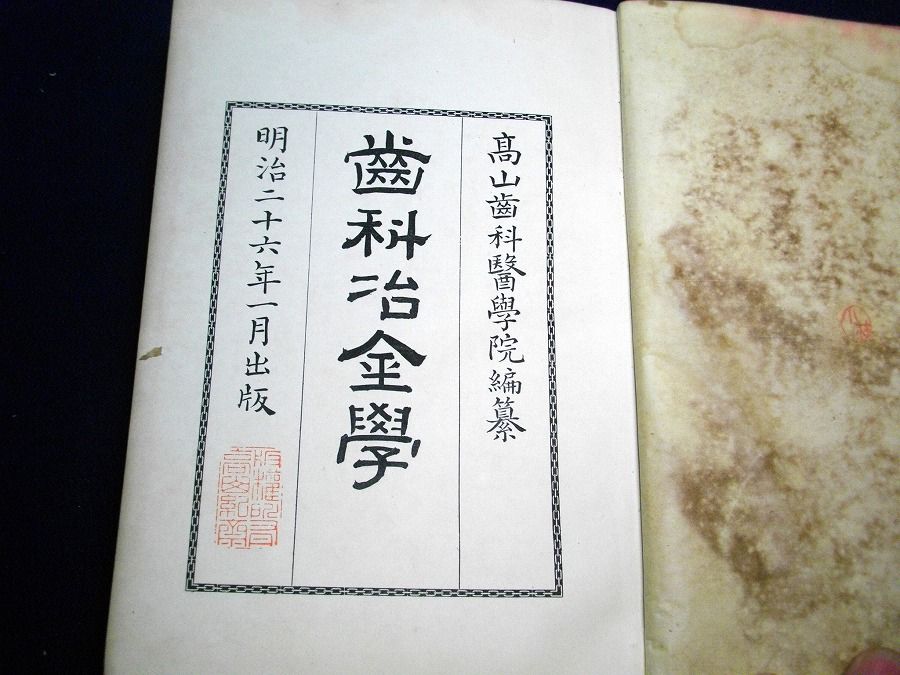 髙山齒科醫學院編纂
齒科冶金學
明治二十六年一月出版